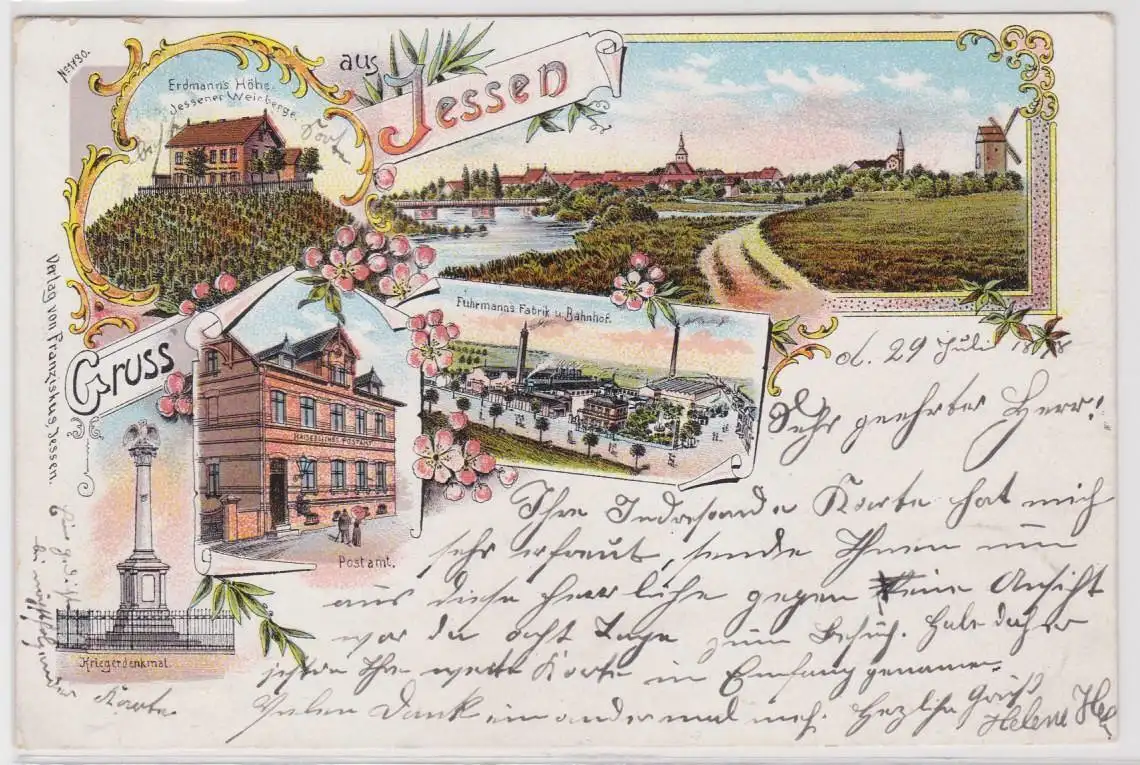 No 1730.
Gruss
aus
Jessen
Erdmann's Höhe.
Jessener Weinberge.
Karte
Verlag von Franziskus, Jessen.
Fuhrmann's Fabrik u. Bahnhof.
KAISERLICHES POSTAMT
Postamt.
Kriegerdenkmal.
d. 29 Juli
Sehr geehrter Herr!
Ihre Karte hat mich
sehr erfraut, sende Ihnen nun
aus diese herrliche gegen eine Ansicht
war da acht Tage zum Besuch. Habe daher
Ihre werte Karte in Empfang genomen.
Vielen Dank ein ander mal mehr. Herzliche Grüß
Helene
Karte